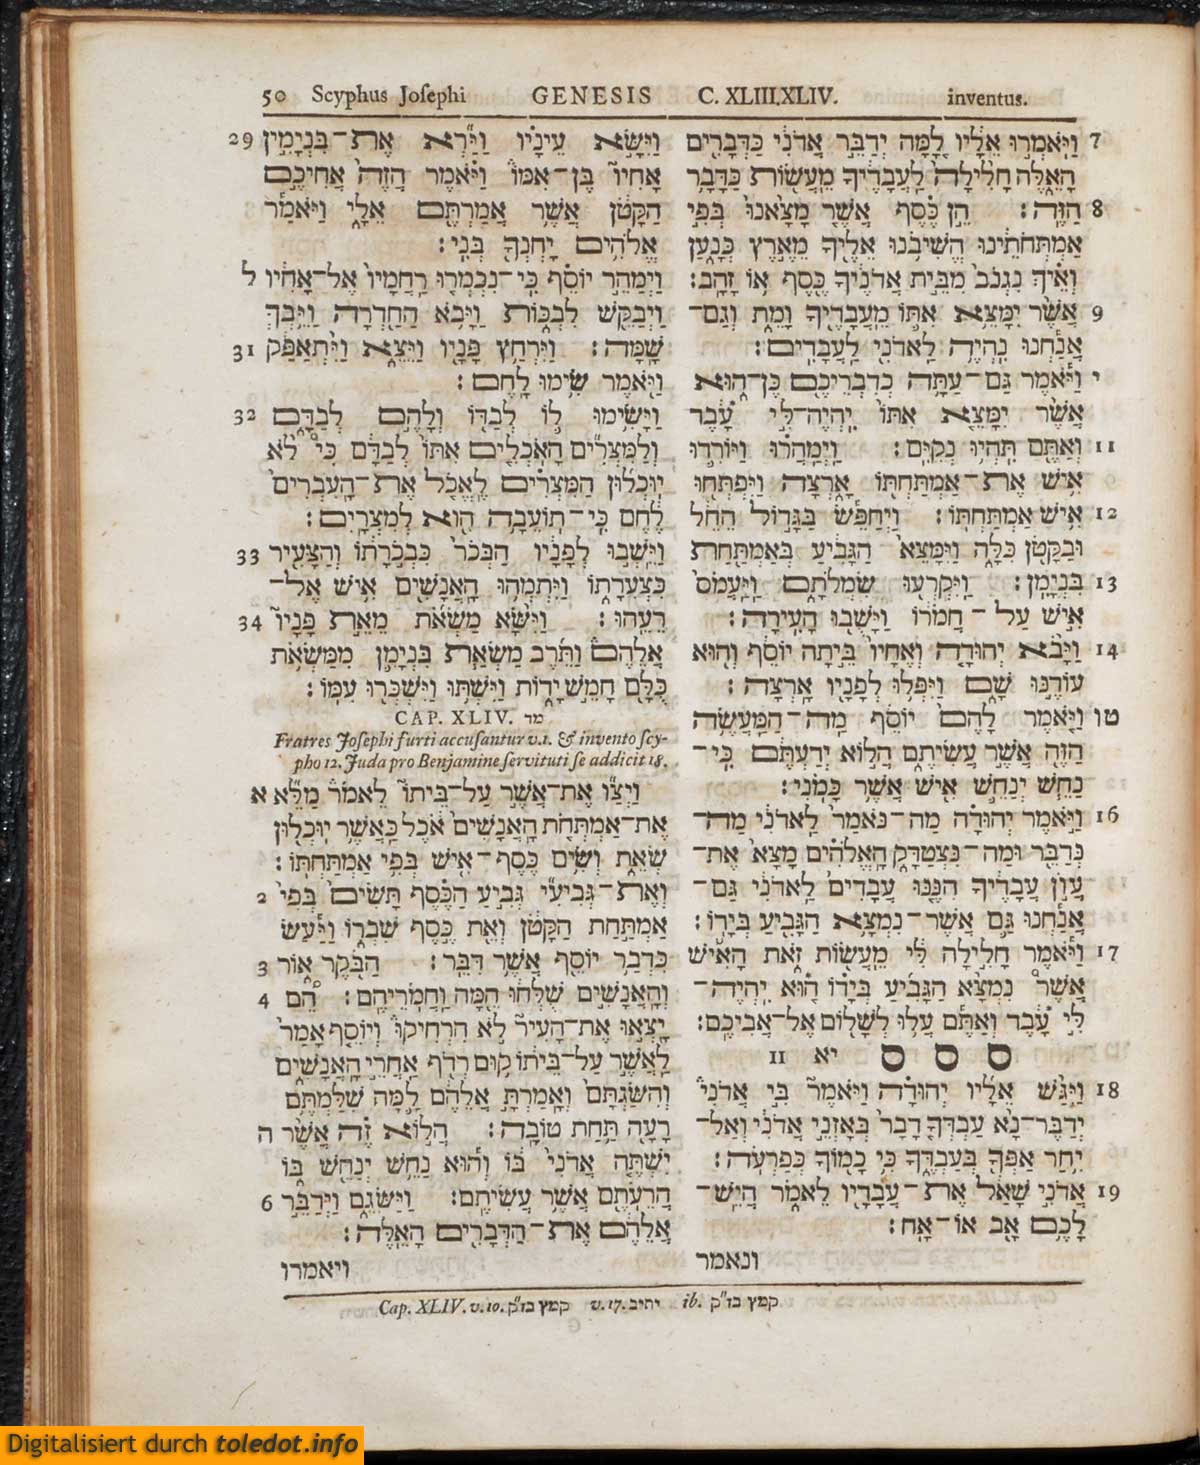 50 Scyphus Joſephi GENESIS C. XLIII.XLIV. inventus.
29 וַיִּשָּׂא עֵינָיו וַיַּרְא אֶת־בִּנְיָמִין
אָחִיו בֶּן־אִמּוֹ וַיֹּאמֶר הֲזֶה אֲחִיכֶם
הַקָּטֹן אֲשֶׁר אֲמַרְתֶּם אֵלָי וַיֹּאמַר
אֱלֹהִים יָחְנְךָ בְּנִי׃
ל וַיְמַהֵר יוֹסֵף כִּי־נִכְמְרוּ רַחֲמָיו אֶל־אָחִיו
וַיְבַקֵּשׁ לִבְכּוֹת וַיָּבֹא הַחַדְרָה וַיֵּבְךְּ
31 שָׁמָּה׃ וַיִּרְחַץ פָּנָיו וַיֵּצֵא וַיִּתְאַפַּק
וַיֹּאמֶר שִׂימוּ לָחֶם׃
32 וַיָּשִׂימוּ לוֹ לְבַדּוֹ וְלָהֶם לְבַדָּם
וְלַמִּצְרִים הָאֹכְלִים אִתּוֹ לְבַדָּם כִּי לֹא
יוּכְלוּן הַמִּצְרִים לֶאֱכֹל אֶת־הָעִבְרִים
לֶחֶם כִּי־תוֹעֵבָה הִוא לְמִצְרָיִם׃
33 וַיֵּשְׁבוּ לְפָנָיו הַבְּכֹר כִּבְכֹרָתוֹ וְהַצָּעִיר
כִּצְעִרָתוֹ וַיִּתְמְהוּ הָאֲנָשִׁים אִישׁ אֶל־
34 רֵעֵהוּ׃ וַיִּשָּׂא מַשְׂאֹת מֵאֵת פָּנָיו
אֲלֵהֶם וַתֵּרֶב מַשְׂאַת בִּנְיָמִן מִמַּשְׂאֹת
כֻּלָּם חָמֵשׁ יָדוֹת וַיִּשְׁתּוּ וַיִּשְׁכְּרוּ עִמּוֹ׃
CAP. XLIV. מד
Fratres Joſephi furti accuſantur v.1. & invento ſcy-
pho 12. Juda pro Benjamine ſervituti ſe addicit 18.
א וַיְצַו אֶת־אֲשֶׁר עַל־בֵּיתוֹ לֵאמֹר מַלֵּא
אֶת־אַמְתְּחֹת הָאֲנָשִׁים אֹכֶל כַּאֲשֶׁר יוּכְלוּן
שְׂאֵת וְשִׂים כֶּסֶף־אִישׁ בְּפִי אַמְתַּחְתּוֹ׃
2 וְאֶת־גְּבִיעִי גְּבִיעַ הַכֶּסֶף תָּשִׂים בְּפִי
אַמְתַּחַת הַקָּטֹן וְאֵת כֶּסֶף שִׁבְרוֹ וַיַּעַשׂ
3 כִּדְבַר יוֹסֵף אֲשֶׁר דִּבֵּר׃ הַבֹּקֶר אוֹר
4 וְהָאֲנָשִׁים שֻׁלְּחוּ הֵמָּה וַחֲמֹרֵיהֶם׃ הֵם
יָצְאוּ אֶת־הָעִיר לֹא הִרְחִיקוּ וְיוֹסֵף אָמַר
לַאֲשֶׁר עַל־בֵּיתוֹ קוּם רְדֹף אַחֲרֵי הָאֲנָשִׁים
וְהִשַּׂגְתָּם וְאָמַרְתָּ אֲלֵהֶם לָמָּה שִׁלַּמְתֶּם
ה רָעָה תַּחַת טוֹבָה׃ הֲלוֹא זֶה אֲשֶׁר
יִשְׁתֶּה אֲדֹנִי בּוֹ וְהוּא נַחֵשׁ יְנַחֵשׁ בּוֹ
6 הֲרֵעֹתֶם אֲשֶׁר עֲשִׂיתֶם׃ וַיַּשִּׂגֵם וַיְדַבֵּר
אֲלֵהֶם אֶת־הַדְּבָרִים הָאֵלֶּה׃
ויאמרו
7 וַיֹּאמְרוּ אֵלָיו לָמָּה יְדַבֵּר אֲדֹנִי כַּדְּבָרִים
הָאֵלֶּה חָלִילָה לַעֲבָדֶיךָ מֵעֲשׂוֹת כַּדָּבָר
8 הַזֶּה׃ הֵן כֶּסֶף אֲשֶׁר מָצָאנוּ בְּפִי
אַמְתְּחֹתֵינוּ הֱשִׁיבֹנוּ אֵלֶיךָ מֵאֶרֶץ כְּנָעַן
וְאֵיךְ נִגְנֹב מִבֵּית אֲדֹנֶיךָ כֶּסֶף אוֹ זָהָב׃
9 אֲשֶׁר יִמָּצֵא אִתּוֹ מֵעֲבָדֶיךָ וָמֵת וְגַם־
אֲנַחְנוּ נִהְיֶה לַאדֹנִי לַעֲבָדִים׃
י וַיֹּאמֶר גַּם־עַתָּה כְדִבְרֵיכֶם כֶּן־הוּא
אֲשֶׁר יִמָּצֵא אִתּוֹ יִהְיֶה־לִּי עָבֶד
11 וְאַתֶּם תִּהְיוּ נְקִיִּם׃ וַיְמַהֲרוּ וַיּוֹרִדוּ
אִישׁ אֶת־אַמְתַּחְתּוֹ אָרְצָה וַיִּפְתְּחוּ
12 אִישׁ אַמְתַּחְתּוֹ׃ וַיְחַפֵּשׂ בַּגָּדוֹל הֵחֵל
וּבַקָּטֹן כִּלָּה וַיִּמָּצֵא הַגָּבִיעַ בְּאַמְתַּחַת
13 בִּנְיָמִן׃ וַיִּקְרְעוּ שִׂמְלֹתָם וַיַּעֲמֹס
אִישׁ עַל־חֲמֹרוֹ וַיָּשֻׁבוּ הָעִירָה׃
14 וַיָּבֹא יְהוּדָה וְאֶחָיו בֵּיתָה יוֹסֵף וְהוּא
עוֹדֶנּוּ שָׁם וַיִּפְּלוּ לְפָנָיו אָרְצָה׃
טו וַיֹּאמֶר לָהֶם יוֹסֵף מָה־הַמַּעֲשֶׂה
הַזֶּה אֲשֶׁר עֲשִׂיתֶם הֲלוֹא יְדַעְתֶּם כִּי־
נַחֵשׁ יְנַחֵשׁ אִישׁ אֲשֶׁר כָּמֹנִי׃
16 וַיֹּאמֶר יְהוּדָה מַה־נֹּאמַר לַאדֹנִי מַה־
נְּדַבֵּר וּמַה־נִּצְטַדָּק הָאֱלֹהִים מָצָא אֶת־
עֲוֹן עֲבָדֶיךָ הִנֶּנּוּ עֲבָדִים לַאדֹנִי גַּם־
אֲנַחְנוּ גַּם אֲשֶׁר־נִמְצָא הַגָּבִיעַ בְּיָדוֹ׃
17 וַיֹּאמֶר חָלִילָה לִּי מֵעֲשׂוֹת זֹאת הָאִישׁ
אֲשֶׁר נִמְצָא הַגָּבִיעַ בְּיָדוֹ הוּא יִהְיֶה־
לִּי עָבֶד וְאַתֶּם עֲלוּ לְשָׁלוֹם אֶל־אֲבִיכֶם׃
ס ס ס יא 11
18 וַיִּגַּשׁ אֵלָיו יְהוּדָה וַיֹּאמֶר בִּי אֲדֹנִי
יְדַבֶּר־נָא עַבְדְּךָ דָבָר בְּאָזְנֵי אֲדֹנִי וְאַל־
יִחַר אַפְּךָ בְּעַבְדֶּךָ כִּי כָמוֹךָ כְּפַרְעֹה׃
19 אֲדֹנִי שָׁאַל אֶת־עֲבָדָיו לֵאמֹר הֲיֵשׁ־
לָכֶם אָב אוֹ־אָח׃
ונאמר
Cap. XLIV. v.10. קמץ בז"ק v.17. יתיב ib. קמץ בז"ק
Digitalisiert durch toledot.info